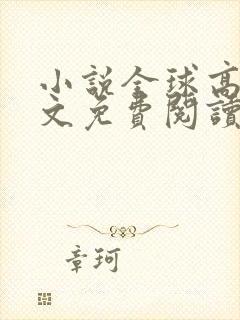 小說全球高
文免費閱讀
章珂